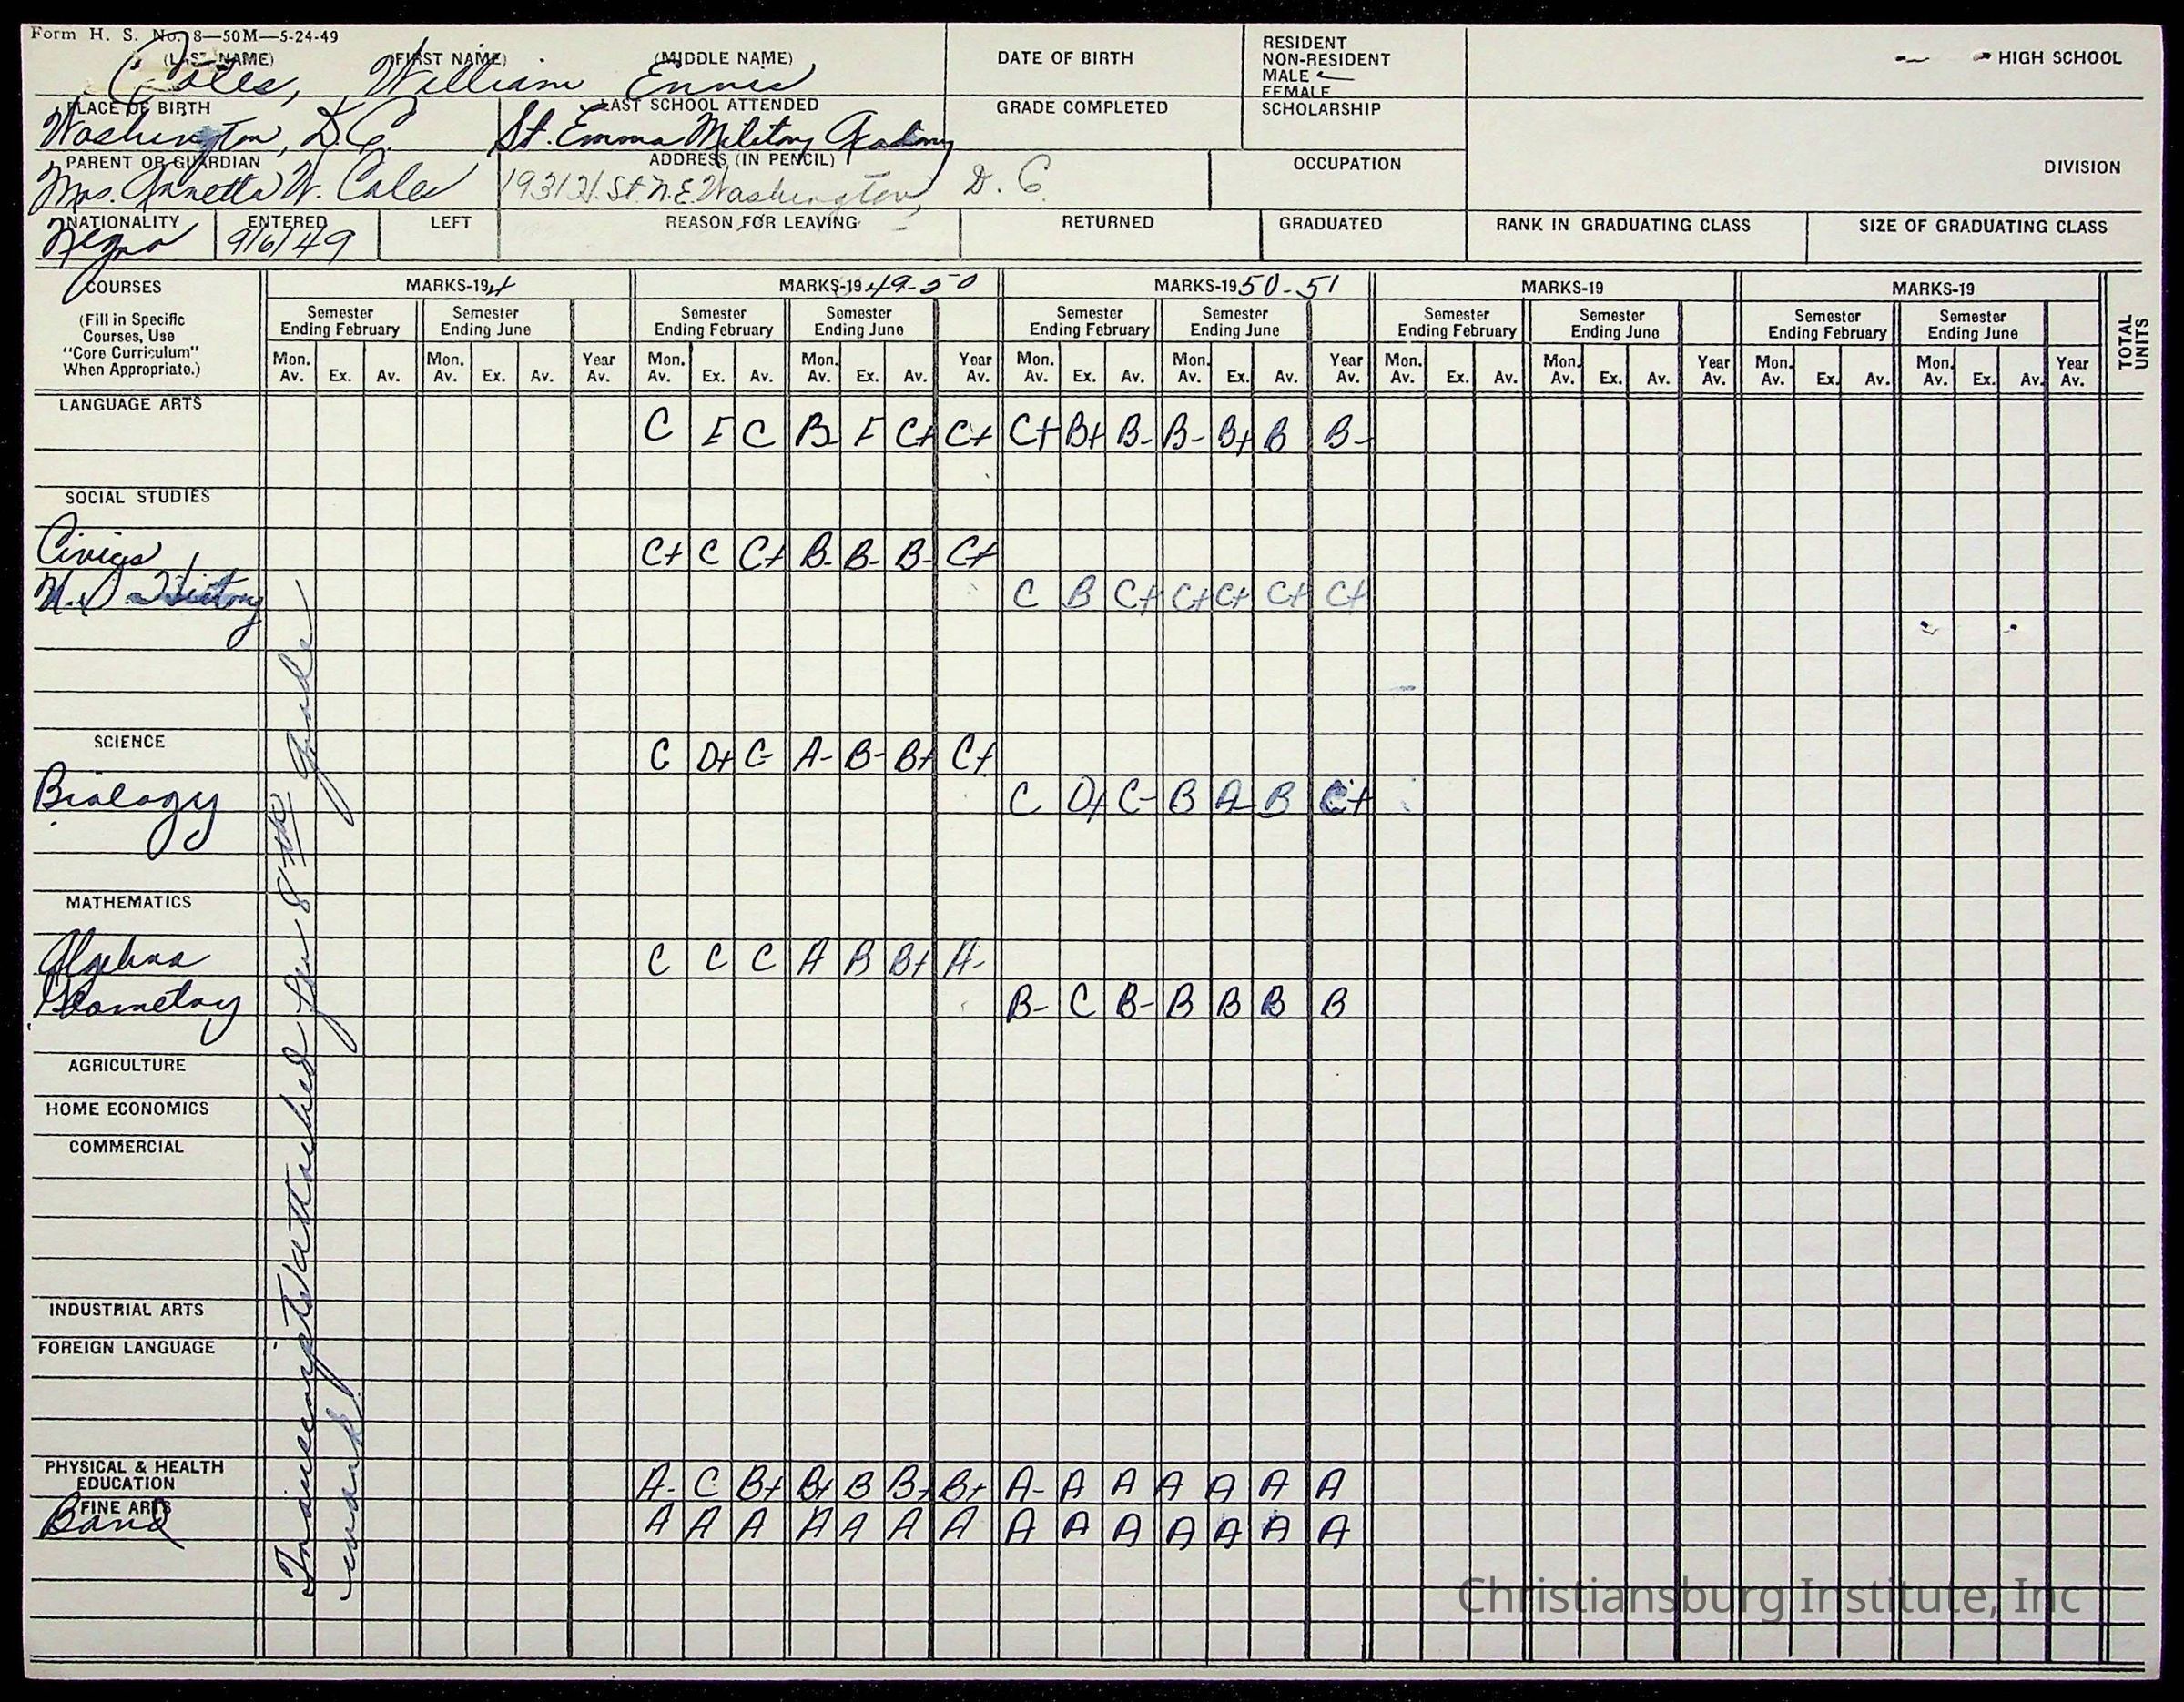 Form H. S. No. 8—50M—5-24-49
(LAST NAME) (FIRST NAME) (MIDDLE NAME) DATE OF BIRTH RESIDENT
NON-RESIDENT
MALE ✓
FEMALE
HIGH SCHOOL
Coles, William Ennis
PLACE OF BIRTH LAST SCHOOL ATTENDED GRADE COMPLETED SCHOLARSHIP
Washington, D.C. St. Emma Military Academy
PARENT OR GUARDIAN ADDRESS (IN PENCIL) OCCUPATION DIVISION
Mrs. Annetta W. Coles St. N.E. Washington, D. C.
NATIONALITY ENTERED LEFT REASON FOR LEAVING RETURNED GRADUATED RANK IN GRADUATING CLASS SIZE OF GRADUATING CLASS
Negro 9/6/49
COURSES MARKS-194 MARKS-1949-50 MARKS-1950-51 MARKS-19 MARKS-19
(Fill in Specific
Courses, Use
"Core Curriculum"
When Appropriate.)
Semester Ending February Semester Ending June Semester Ending February Semester Ending June Semester Ending February Semester Ending June Semester Ending February Semester Ending June Semester Ending February Semester Ending June
TOTAL UNITS
Mon. Av. Ex. Av. Mon. Av. Ex. Av. Year Av. Mon. Av. Ex. Av. Mon. Av. Ex. Av. Year Av. Mon. Av. Ex. Av. Mon. Av. Ex. Av. Year Av. Mon. Av. Ex. Av. Mon. Av. Ex. Av. Year Av. Mon. Av. Ex. Av. Mon. Av. Ex. Av. Year Av.
LANGUAGE ARTS
C C B C+ C+ C+ B+ B- B- B+ B B-
SOCIAL STUDIES
Civics C+ C C+ B- B- B- C+
U.S. History C B C+ C+ C+ C+ C+
SCIENCE C D+ C- A- B- B+ C+
Biology C D+ C- B A- B C+
MATHEMATICS
Algebra C C C A B B+ A-
Geometry B- C B- B B B B
AGRICULTURE
HOME ECONOMICS
COMMERCIAL
INDUSTRIAL ARTS
FOREIGN LANGUAGE
PHYSICAL & HEALTH
EDUCATION A- C B+ B+ B B+ B+ A- A A A A A A
FINE ARTS
Band A A A A A A A A A A A A A A
Transcript attached for 8th grade
work
Christiansburg Institute, Inc